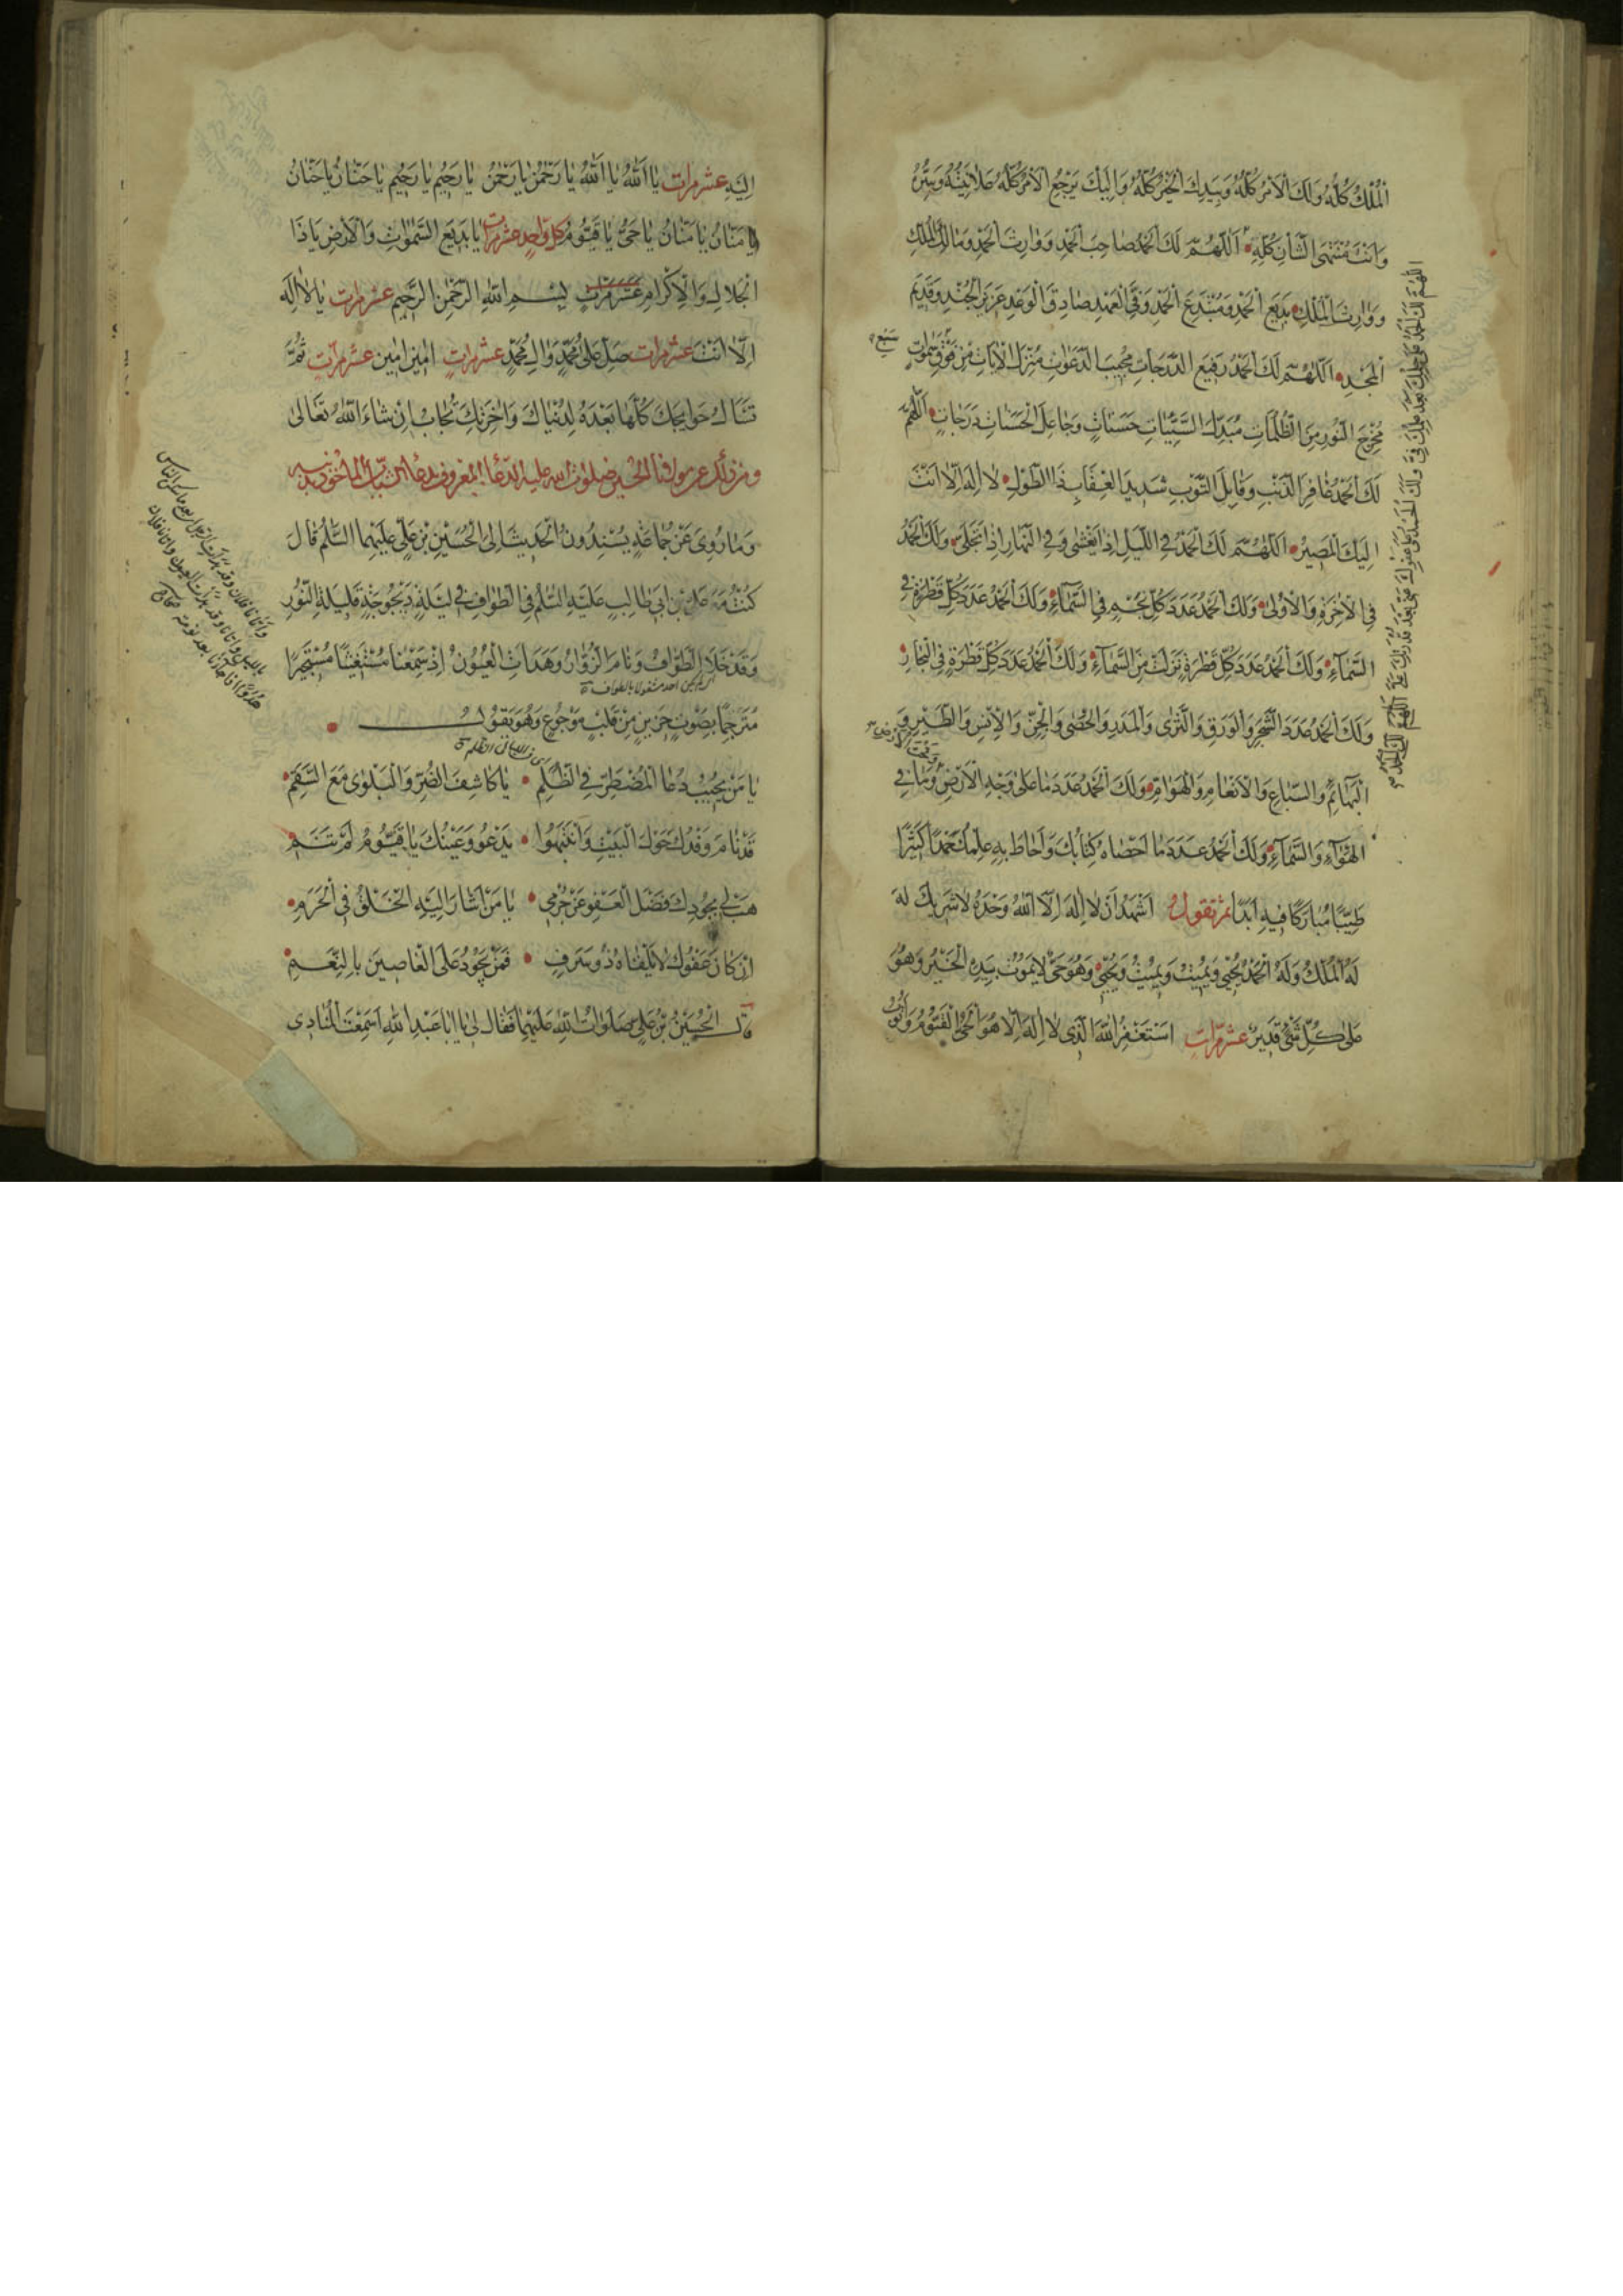 الْمُلْكُ كُلُّهُ وَلَكَ الْاَمْرُ كُلُّهُ وَبِيَدِكَ الْخَيْرُ كُلُّهُ وَاِلَيْكَ يَرْجِعُ الْاَمْرُ كُلُّهُ عَلَانِيَتُهُ وَسِرُّهُ
وَاَنْتَ مُنْتَهَى الشَّاْنِ كُلِّهِ اَللّٰهُمَّ لَكَ الْحَمْدُ صَاحِبَ الْحَمْدِ وَوَارِثَ الْحَمْدِ وَمَالِكَ الْمُلْكِ
وَوَارِثَ الْمُلْكِ بَدِيعَ الْحَمْدِ وَمُبْتَدِعَ الْحَمْدِ وَفِيَّ الْعَهْدِ صَادِقَ الْوَعْدِ عَزِيزَ الْجُنْدِ وَقَدِيمَ
الْمَجْدِ اَللّٰهُمَّ لَكَ الْحَمْدُ رَفِيعَ الدَّرَجَاتِ مُجِيبَ الدَّعَوَاتِ مُنْزِلَ الْاٰيَاتِ مِنْ فَوْقِ سَبْعِ سَمٰوَاتٍ
مُخْرِجَ النُّورِ مِنَ الظُّلُمَاتِ مُبَدِّلَ السَّيِّئَاتِ حَسَنَاتٍ وَجَاعِلَ الْحَسَنَاتِ دَرَجَاتٍ اَللّٰهُمَّ
لَكَ الْحَمْدُ غَافِرَ الذَّنْبِ وَقَابِلَ التَّوْبِ شَدِيدَ الْعِقَابِ ذَا الطَّوْلِ لَا اِلٰهَ اِلَّا اَنْتَ
اِلَيْكَ الْمَصِيرُ اَللّٰهُمَّ لَكَ الْحَمْدُ فِي اللَّيْلِ اِذَا يَغْشٰى وَفِي النَّهَارِ اِذَا تَجَلّٰى وَلَكَ الْحَمْدُ
فِي الْاٰخِرَةِ وَالْاُولٰى وَلَكَ الْحَمْدُ عَدَدَ كُلِّ نَجْمٍ فِي السَّمَاءِ وَلَكَ الْحَمْدُ عَدَدَ كُلِّ قَطْرَةٍ فِي
السَّمَاءِ وَلَكَ الْحَمْدُ عَدَدَ كُلِّ قَطْرَةٍ نَزَلَتْ مِنَ السَّمَاءِ وَلَكَ الْحَمْدُ عَدَدَ كُلِّ قَطْرَةٍ فِي الْبِحَارِ
وَلَكَ الْحَمْدُ عَدَدَ الشَّجَرِ وَالْوَرَقِ وَالثَّرٰى وَالْمَدَرِ وَالْحَصٰى وَالْجِنِّ وَالْاِنْسِ وَالطَّيْرِ وَ
الْبَهَائِمِ وَالسِّبَاعِ وَالْاَنْعَامِ وَالْهَوَامِّ وَلَكَ الْحَمْدُ عَدَدَ مَا عَلٰى وَجْهِ الْاَرْضِ وَمَا فِي
الْهَوَاءِ وَالسَّمَاءِ وَلَكَ الْحَمْدُ عَدَدَ مَا اَحْصَاهُ كِتَابُكَ وَاَحَاطَ بِهِ عِلْمُكَ حَمْدًا كَثِيرًا
طَيِّبًا مُبَارَكًا فِيهِ اَبَدًا ثم تقول اَشْهَدُ اَنْ لَا اِلٰهَ اِلَّا اللّٰهُ وَحْدَهُ لَا شَرِيكَ لَهُ
لَهُ الْمُلْكُ وَلَهُ الْحَمْدُ يُحْيِي وَيُمِيتُ وَيُمِيتُ وَيُحْيِي وَهُوَ حَيٌّ لَا يَمُوتُ بِيَدِهِ الْخَيْرُ وَهُوَ
عَلٰى كُلِّ شَيْءٍ قَدِيرٌ عشر مرات اَسْتَغْفِرُ اللّٰهَ الَّذِي لَا اِلٰهَ اِلَّا هُوَ الْحَيُّ الْقَيُّومُ وَاَتُوبُ
اِلَيْهِ عشر مرات يَا اَللّٰهُ يَا اَللّٰهُ يَا رَحْمٰنُ يَا رَحْمٰنُ يَا رَحِيمُ يَا رَحِيمُ يَا حَنَّانُ يَا حَنَّانُ
يَا مَنَّانُ يَا مَنَّانُ يَا حَيُّ يَا قَيُّومُ كل واحد عشر مرات يَا بَدِيعَ السَّمٰوَاتِ وَالْاَرْضِ يَا ذَا
الْجَلَالِ وَالْاِكْرَامِ عشر مرات بِسْمِ اللّٰهِ الرَّحْمٰنِ الرَّحِيمِ عشر مرات يَا لَا اِلٰهَ
اِلَّا اَنْتَ عشر مرات صَلِّ عَلٰى مُحَمَّدٍ وَاٰلِ مُحَمَّدٍ عشر مرات اٰمِينَ اٰمِينَ عشر مرات ثُمَّ
تَسْاَلُ حَوَائِجَكَ كُلَّهَا بَعْدَهُ لِدُنْيَاكَ وَاٰخِرَتِكَ تُجَابُ اِنْ شَاءَ اللّٰهُ تَعَالٰى
ومن ذلك عن مولانا الحسين صلوات الله عليه الدعاء المعروف بدعاء الشاب المأخوذ بذنبه
وَمَا رُوِيَ عَنْ جَمَاعَةٍ يُسْنِدُونَ الْحَدِيثَ اِلَى الْحُسَيْنِ بْنِ عَلِيٍّ عَلَيْهِمَا السَّلَمُ قَالَ
كُنْتُ مَعَ عَلِيِّ بْنِ اَبِي طَالِبٍ عَلَيْهِ السَّلَمُ فِي الطَّوَافِ فِي لَيْلَةٍ دَيْجُوجَةٍ قَلِيلَةِ النُّورِ
وَقَدْ خَلَا الطَّوَافُ وَنَامَ الزُّوَّارُ وَهَدَاَتِ الْعُيُونُ اِذْ سَمِعْنَا مُسْتَغِيثًا مُسْتَجِيرًا
مُتَرَحِّمًا بِصَوْتٍ حَزِينٍ مِنْ قَلْبٍ مَوْجُوعٍ وَهُوَ يَقُولُ
يَا مَنْ يُجِيبُ دُعَا الْمُضْطَرِّ فِي الظُّلَمِ يَا كَاشِفَ الضُّرِّ وَالْبَلْوٰى مَعَ السَّقَمِ
قَدْ نَامَ وَفْدُكَ حَوْلَ الْبَيْتِ وَانْتَبَهُوا يَدْعُو وَعَيْنُكَ يَا قَيُّومُ لَمْ تَنَمِ
هَبْ لِي بِجُودِكَ فَضْلَ الْعَفْوِ عَنْ جُرْمِي يَا مَنْ اَشَارَ اِلَيْهِ الْخَلْقُ فِي الْحَرَمِ
اِنْ كَانَ عَفْوُكَ لَا يَلْقَاهُ ذُو سَرَفٍ فَمَنْ يَجُودُ عَلَى الْعَاصِينَ بِالنِّعَمِ
قَالَ الْحُسَيْنُ بْنُ عَلِيٍّ صَلَوَاتُ اللّٰهِ عَلَيْهِمَا فَقَالَ لِي يَا اَبَا عَبْدِ اللّٰهِ اَسَمِعْتَ الْمُنَادِيَ